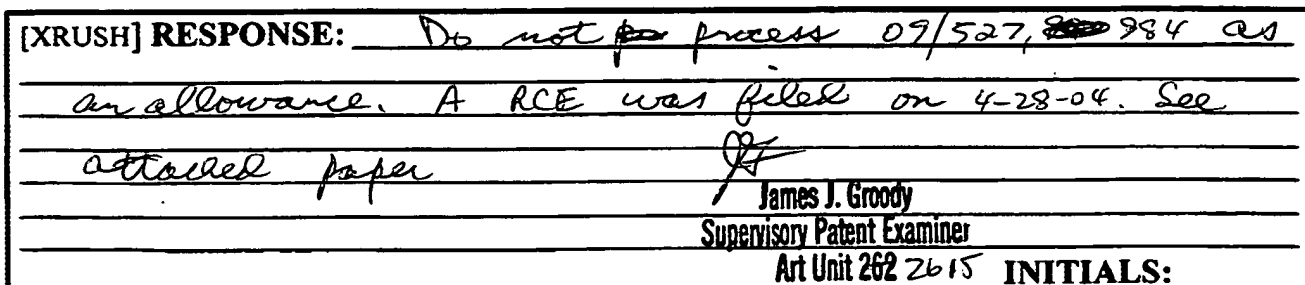 [XRUSH] RESPONSE: Do not process 09/527,984 as
an allowance. A RCE was filed on 4-28-04. See
attached paper
James J. Groody
Supervisory Patent Examiner
Art Unit 262 2615 INITIALS: